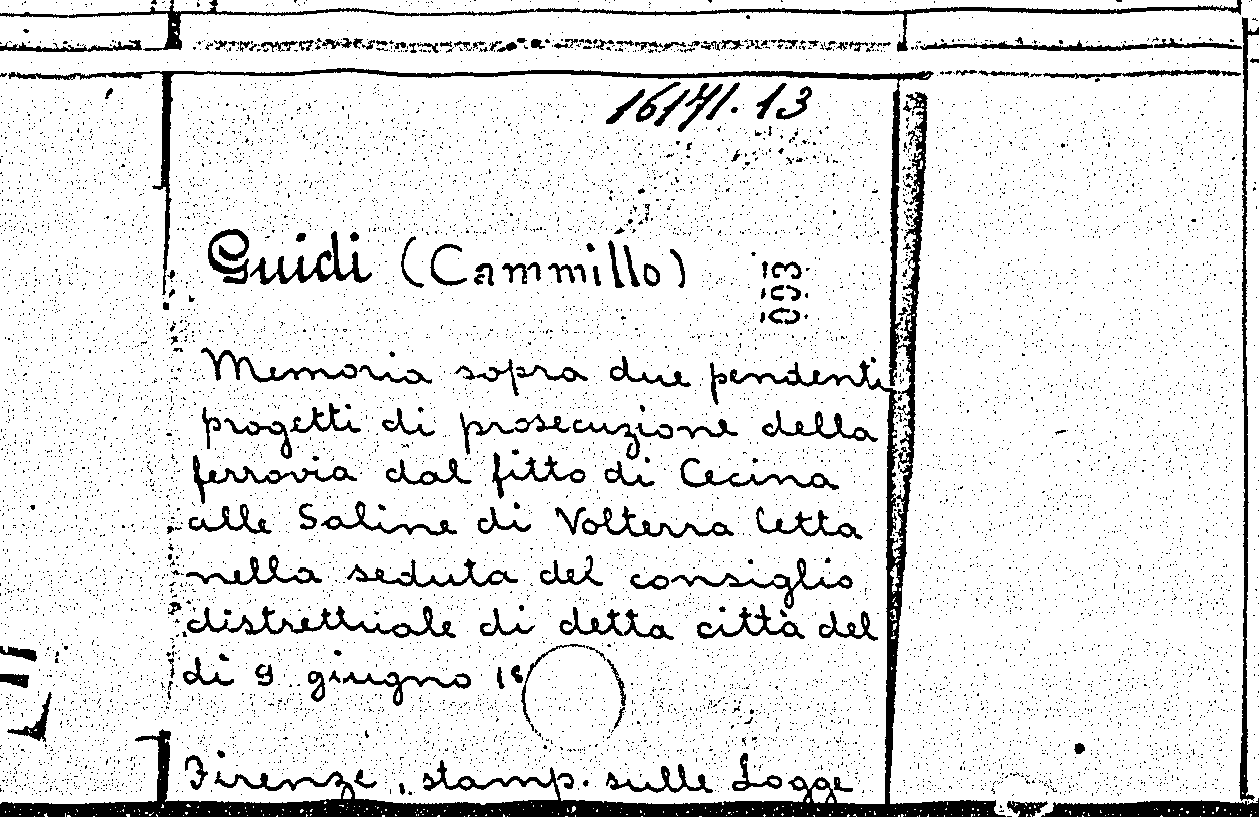 16171.13
Guidi (Cammillo)
003
Memoria sopra due pendenti
progetti di prosecuzione della
ferrovia dal fitto di Cecina
alle Saline di Volterra letta
nella seduta del consiglio
distrettuale di detta città del
di 9 giugno 18
Firenze, stamp. sulle Logge